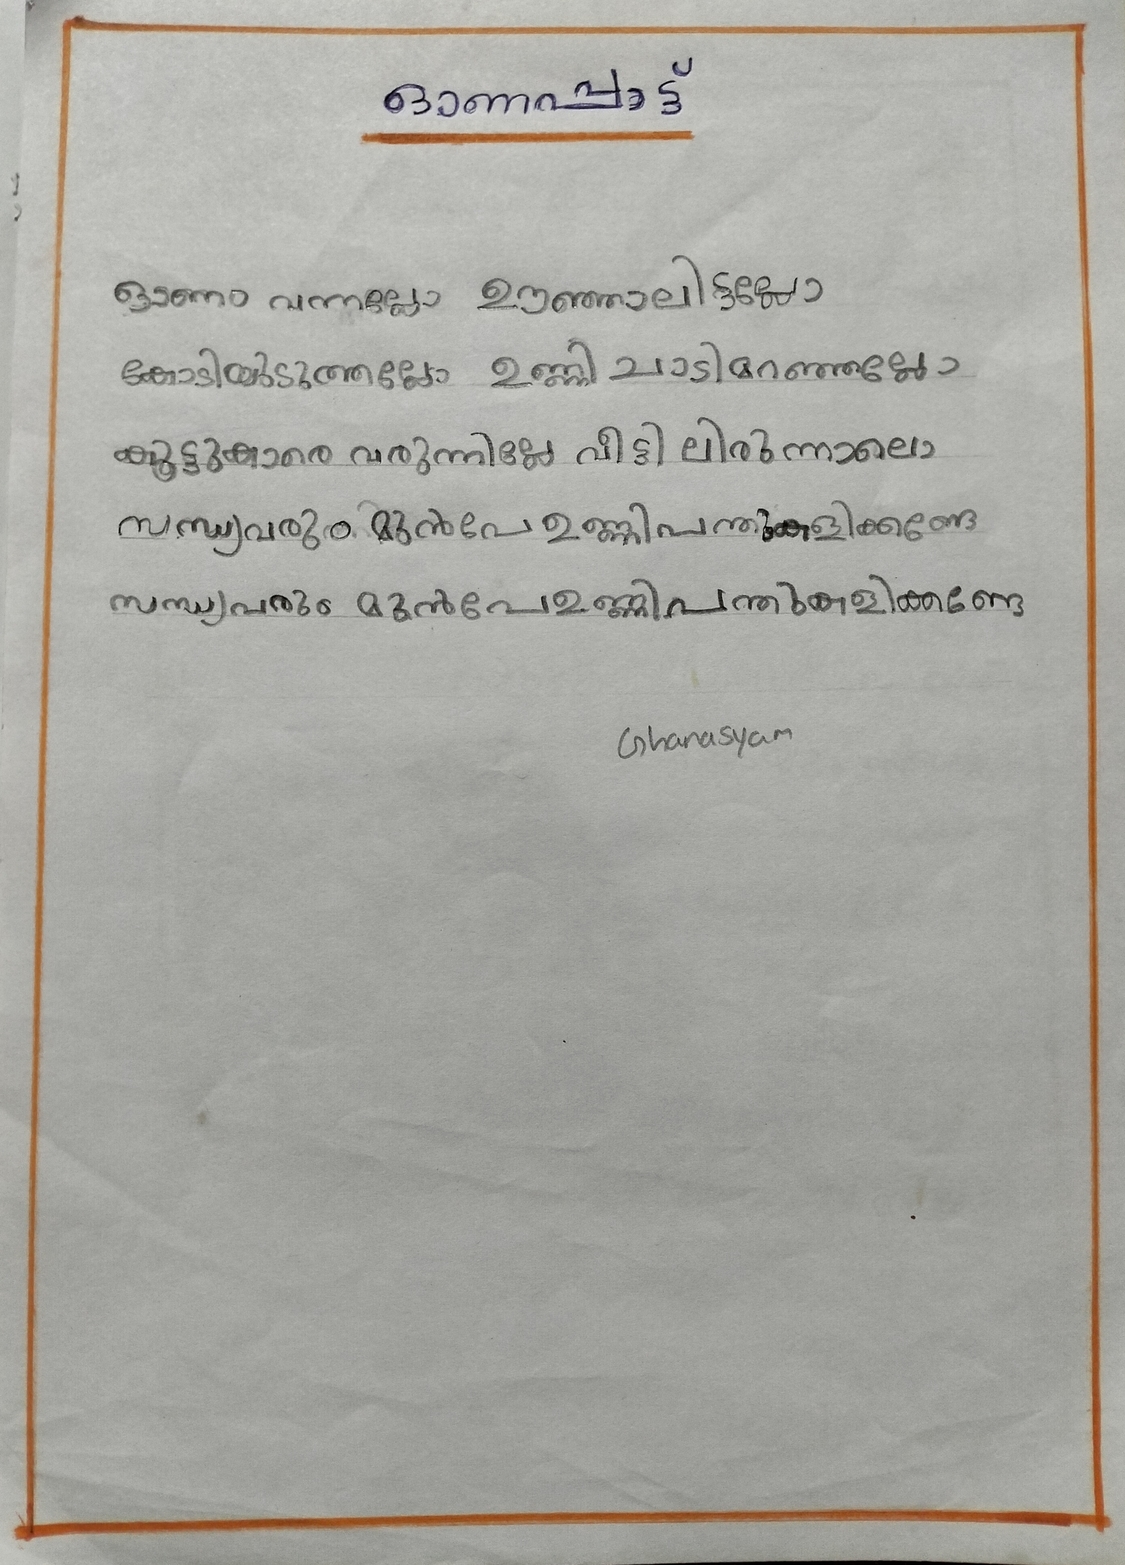 ഓണപ്പാട്ട്
ഓണം വന്നല്ലോ ഊഞ്ഞാലിട്ടല്ലോ
കോടിയുടുത്തല്ലോ ഉണ്ണി ചാടിമറഞ്ഞല്ലോ
കൂട്ടുകാരെ വരുന്നില്ലേ വീട്ടിലിരുന്നാലൊ
സന്ധ്യവരും മുൻപേ ഉണ്ണിപന്തുകളിക്കണ്ടേ
സന്ധ്യവരും മുൻപേ ഉണ്ണിപന്തുകളിക്കണ്ടേ
Ghanasyam